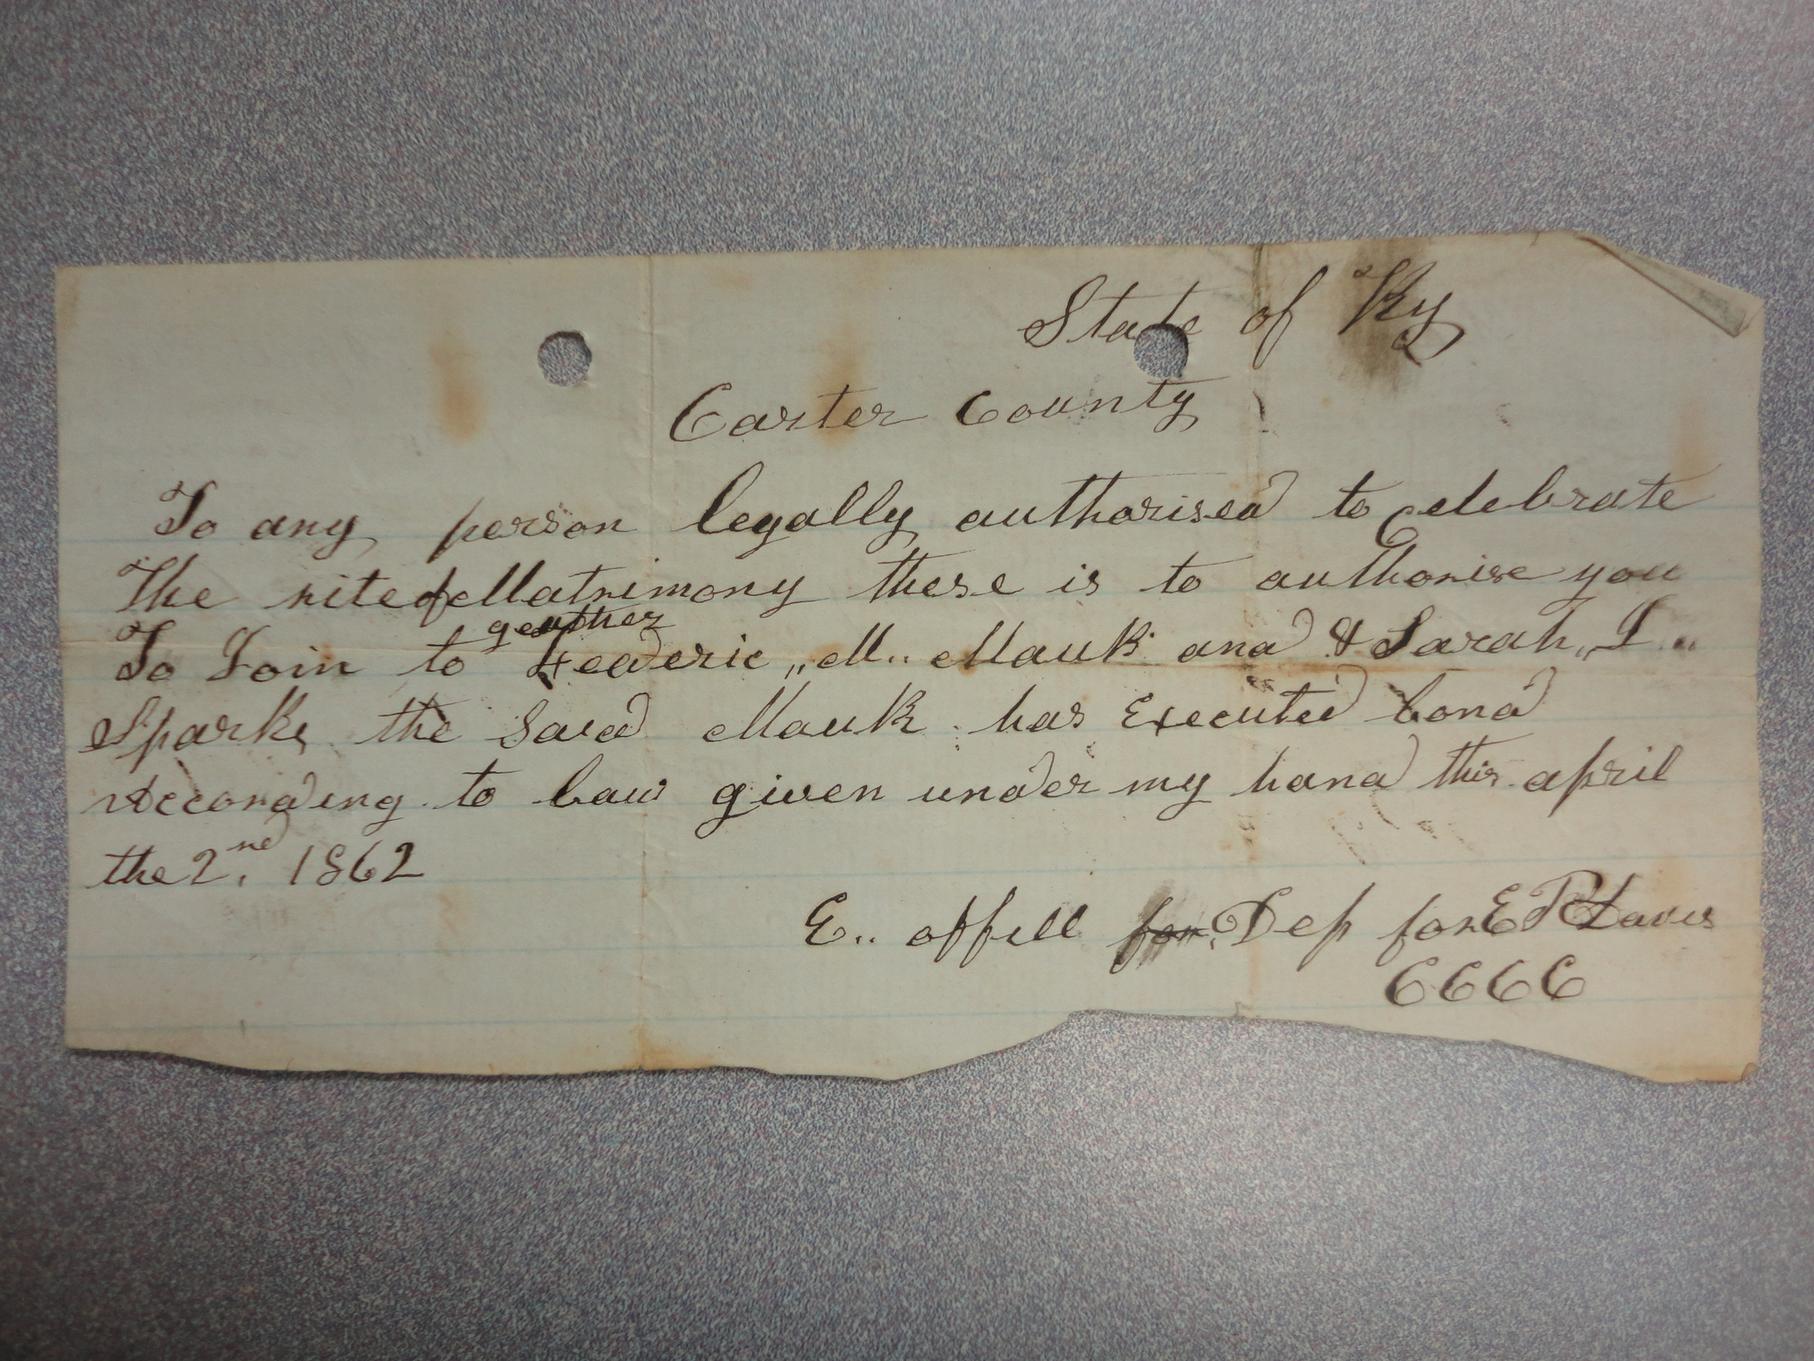 State of Ky
Carter County
To any person legally authorised to Celebrate
The rite of Matrimony these is to authorise you
geather
To Join to Feaderic „M.. Mauk and & Sarah „J..
Sparks the Said Mauk has Executed bond
According to law given under my hand this april
the 2nd. 1862
E.. offill for Dep for E P Davis
CCCC